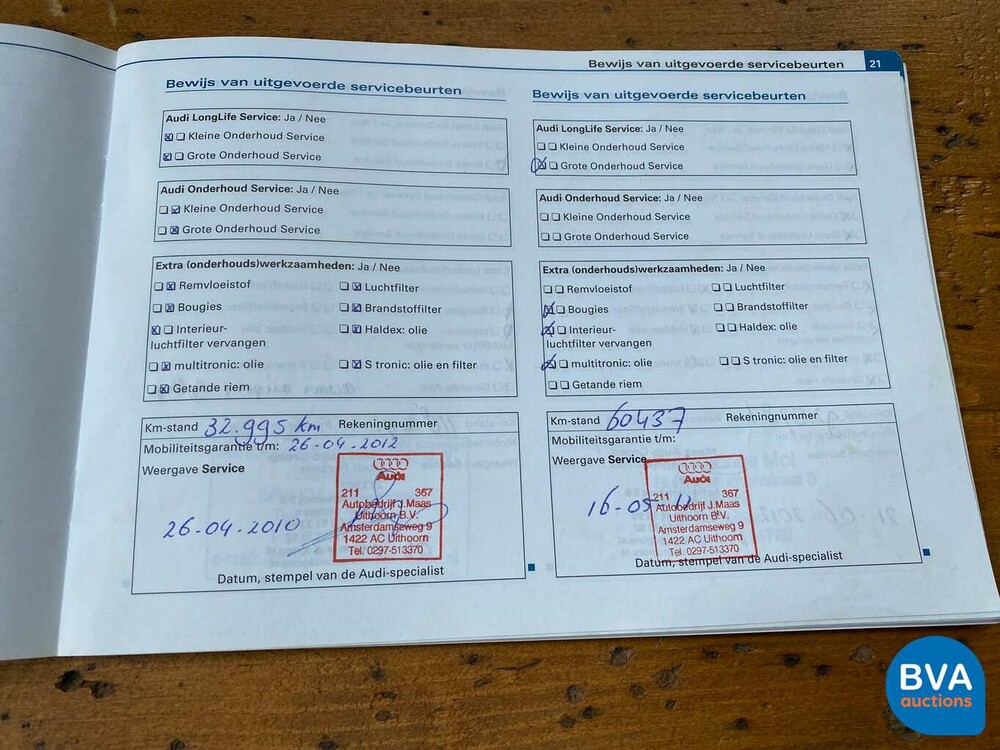 Bewijs van uitgevoerde servicebeurten 21
Bewijs van uitgevoerde servicebeurten
Audi LongLife Service: Ja / Nee
Kleine Onderhoud Service
Grote Onderhoud Service
Audi Onderhoud Service: Ja / Nee
Kleine Onderhoud Service
Grote Onderhoud Service
Extra (onderhouds)werkzaamheden: Ja / Nee
Remvloeistof Luchtfilter
Bougies Brandstoffilter
Interieur- Haldex: olie
luchtfilter vervangen
multitronic: olie S tronic: olie en filter
Getande riem
Km-stand 32.995 km Rekeningnummer
Mobiliteitsgarantie t/m: 26-04-2012
Weergave Service
26-04-2010
Audi
211 367
Autobedrijf J.Maas
Uithoorn B.V.
Amsterdamseweg 9
1422 AC Uithoorn
Tel. 0297-513370
Datum, stempel van de Audi-specialist
Bewijs van uitgevoerde servicebeurten
Audi LongLife Service: Ja / Nee
Kleine Onderhoud Service
Grote Onderhoud Service
Audi Onderhoud Service: Ja / Nee
Kleine Onderhoud Service
Grote Onderhoud Service
Extra (onderhouds)werkzaamheden: Ja / Nee
Remvloeistof Luchtfilter
Bougies Brandstoffilter
Interieur- Haldex: olie
luchtfilter vervangen
multitronic: olie S tronic: olie en filter
Getande riem
Km-stand 60437 Rekeningnummer
Mobiliteitsgarantie t/m:
Weergave Service
Audi
211 367
Autobedrijf J.Maas
Uithoorn B.V.
Amsterdamseweg 9
1422 AC Uithoorn
Tel. 0297-513370
Datum, stempel van de Audi-specialist
BVA
auctions